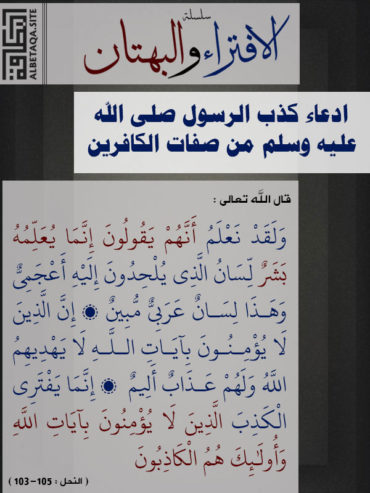 البطاقة
ALBETAQA.SITE
سلسلة
الافتراء والبهتان
ادعاء كذب الرسول صلى الله
عليه وسلم من صفات الكافرين
قال الله تعالى :
وَلَقَدْ نَعْلَمُ أَنَّهُمْ يَقُولُونَ إِنَّمَا يُعَلِّمُهُ
بَشَرٌ لِّسَانُ الَّذِي يُلْحِدُونَ إِلَيْهِ أَعْجَمِيٌّ
وَهَذَا لِسَانٌ عَرَبِيٌّ مُّبِينٌ ۞ إِنَّ الَّذِينَ
لَا يُؤْمِنُونَ بِآيَاتِ اللَّهِ لَا يَهْدِيهِمُ
اللَّهُ وَلَهُمْ عَذَابٌ أَلِيمٌ ۞ إِنَّمَا يَفْتَرِي
الْكَذِبَ الَّذِينَ لَا يُؤْمِنُونَ بِآيَاتِ اللَّهِ
وَأُولَٰئِكَ هُمُ الْكَاذِبُونَ
( النحل : 105-103 )